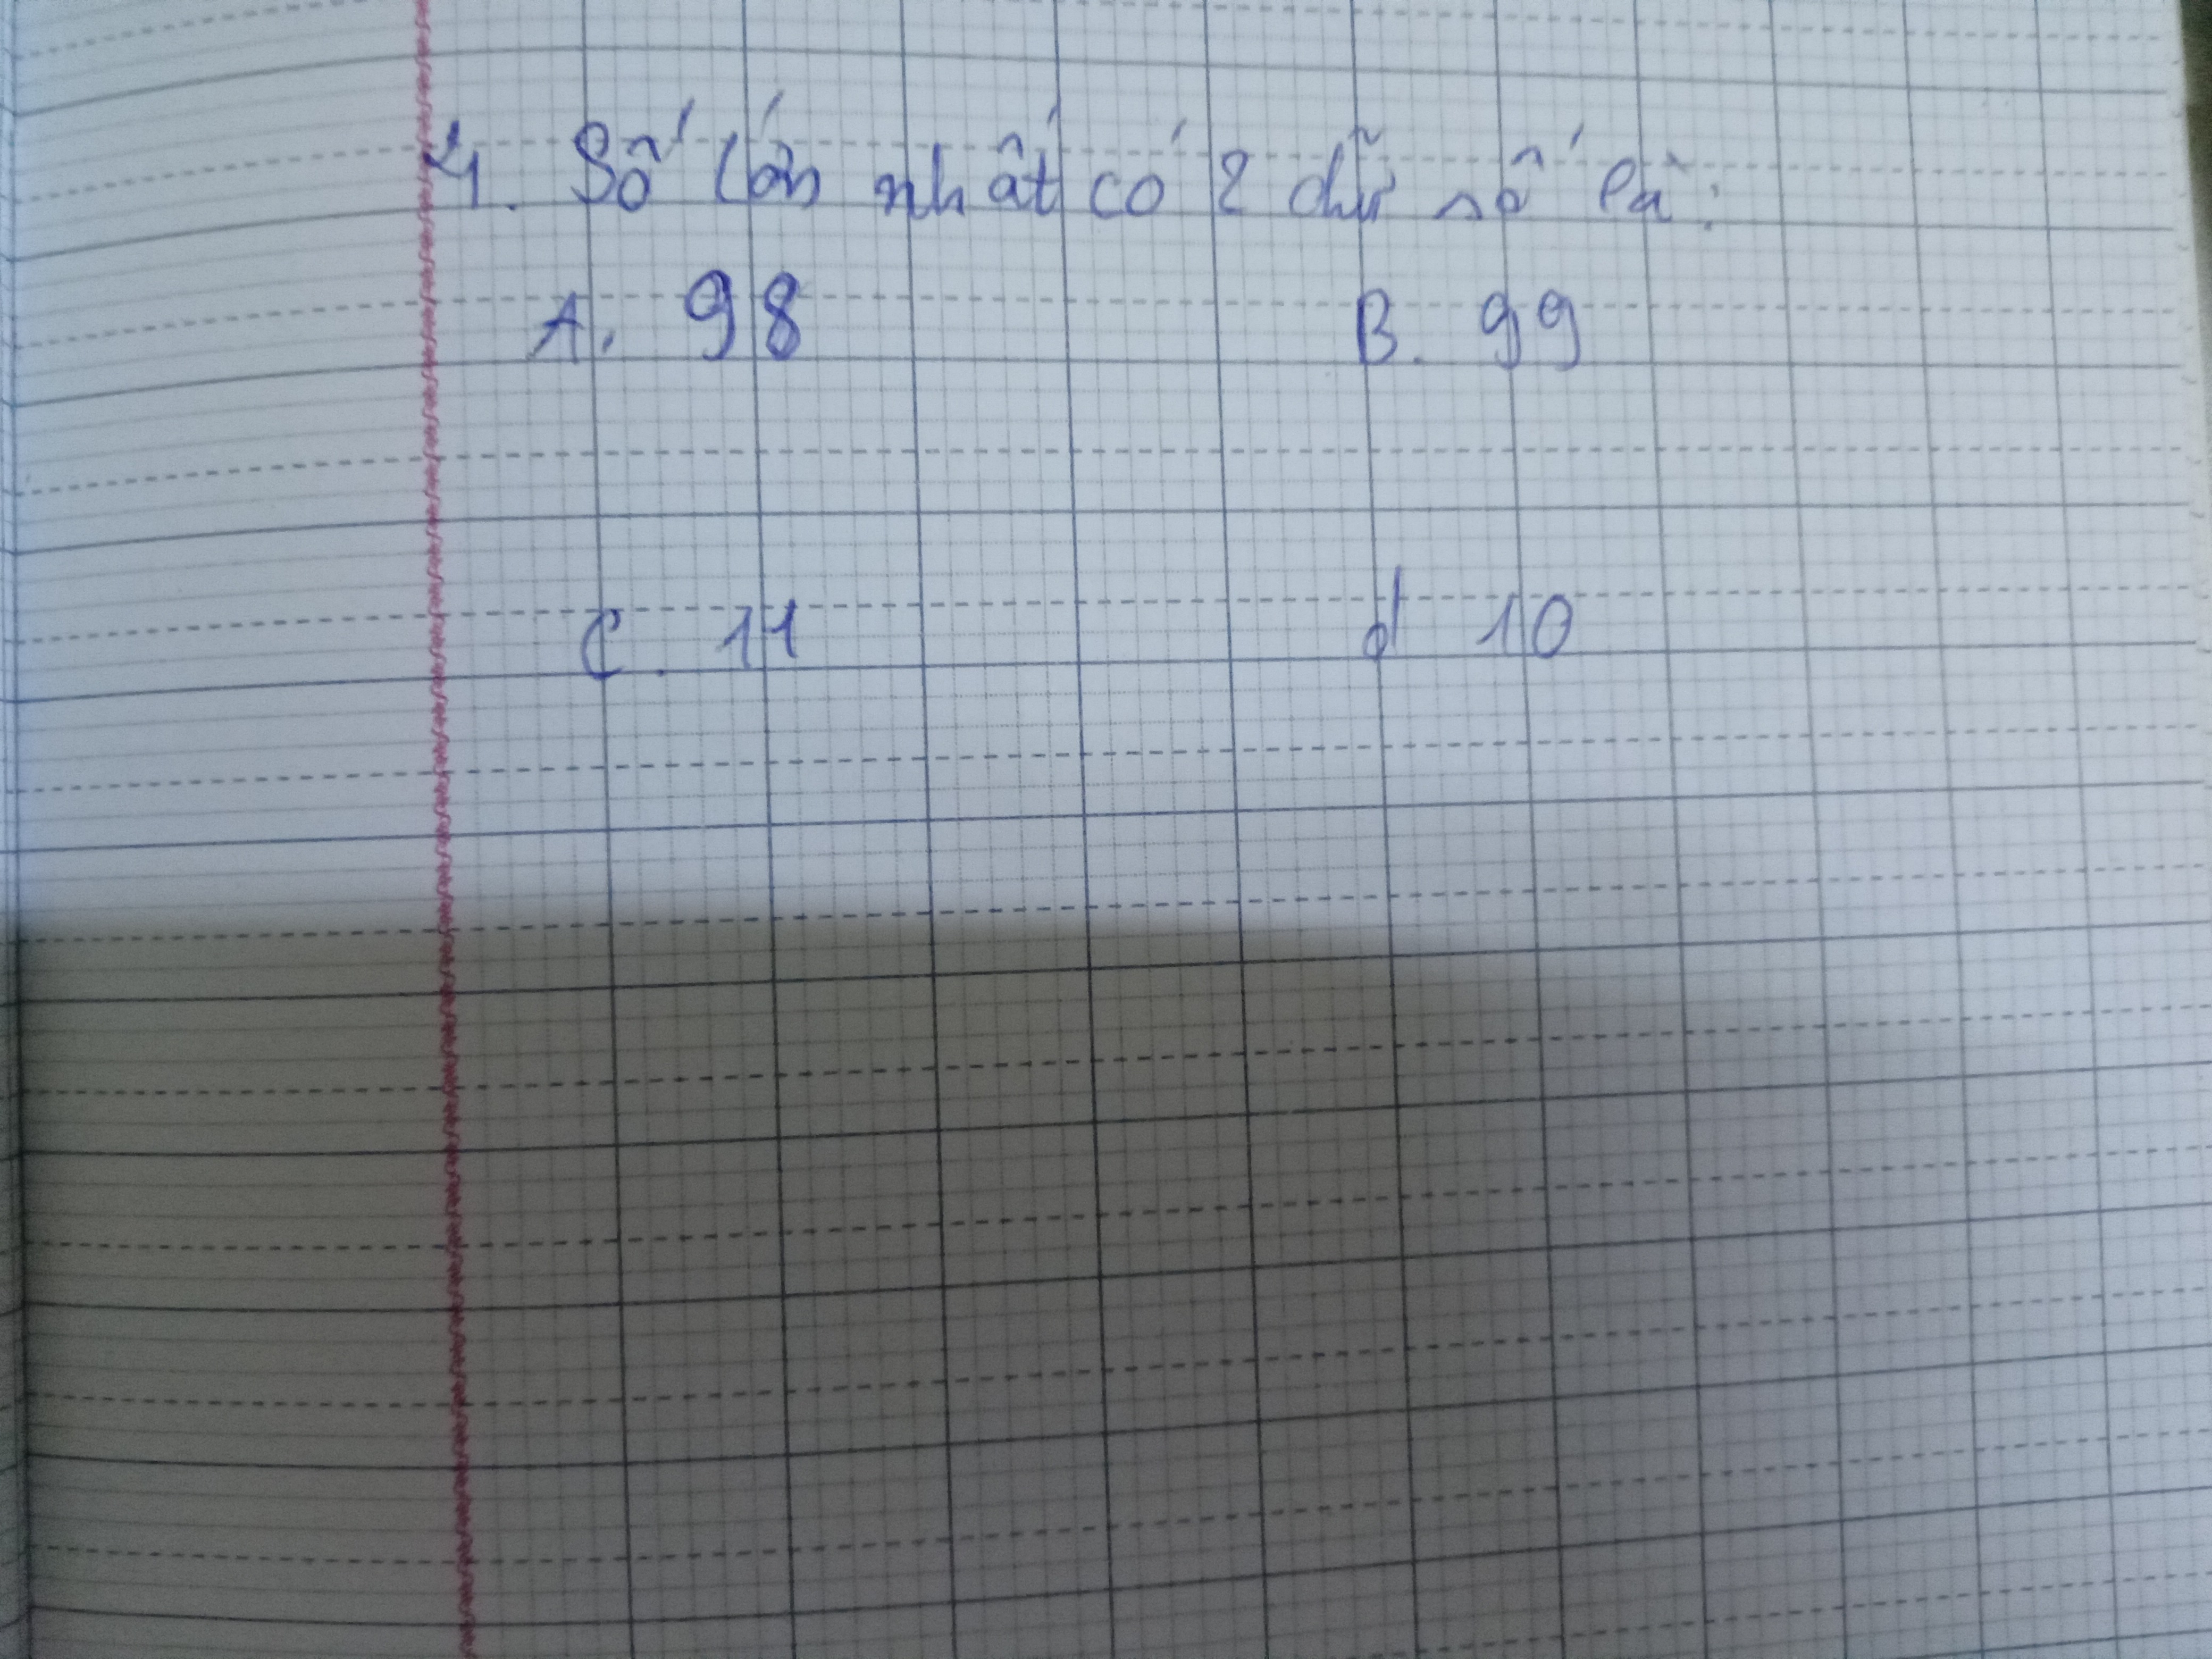 4. Số lớn nhất có 2 chữ số là:
A. 98 B. 99
C. 11 d 10